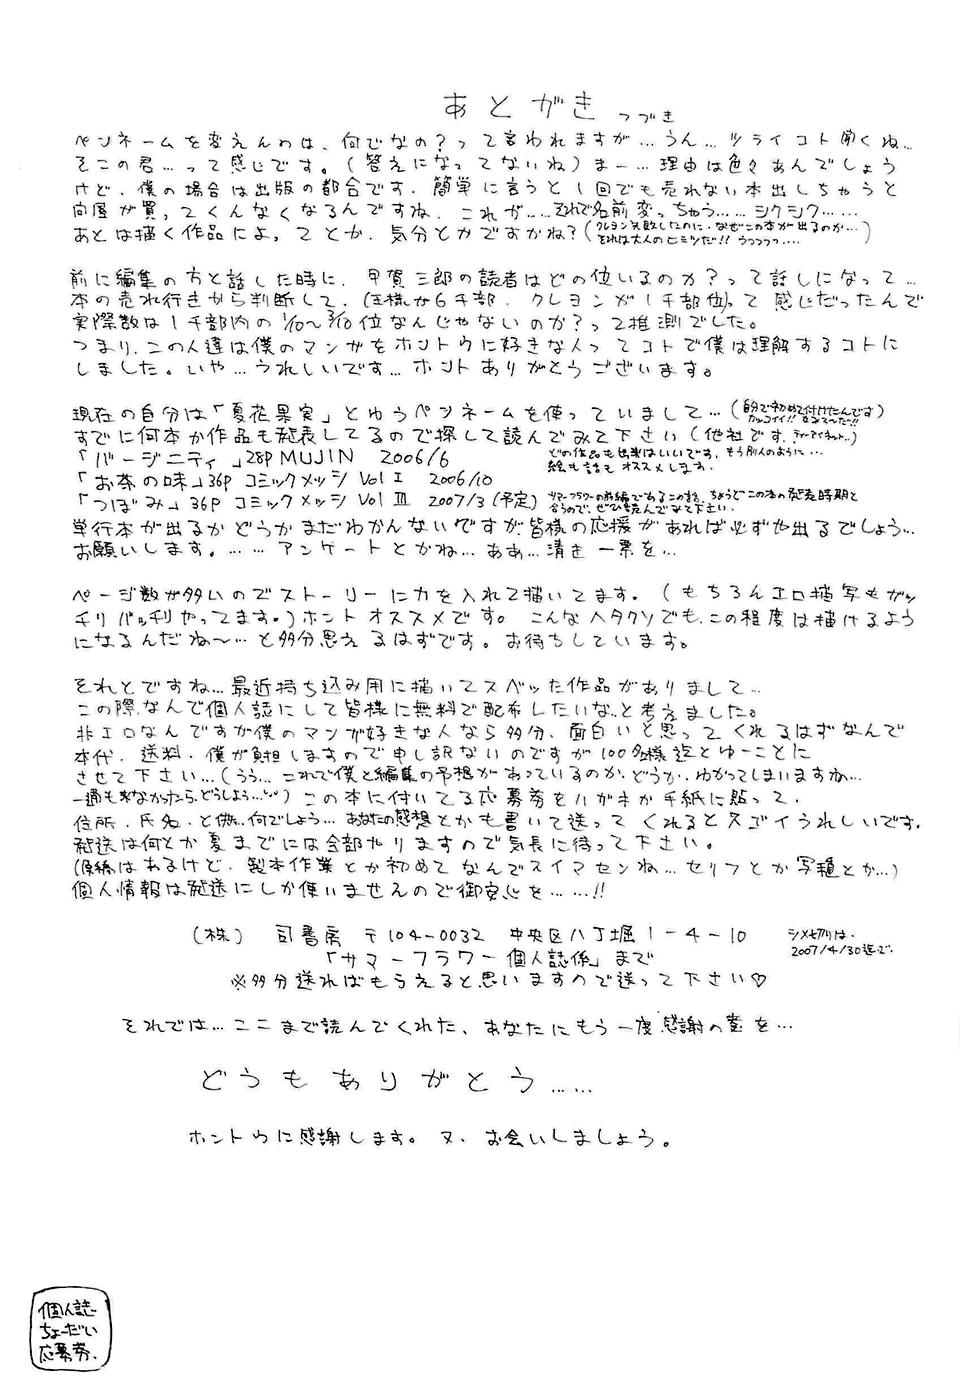 あとがき つづき
ペンネームを変えんのは、何でなの?って言われますが…うん…ツライコト聞くね…
そこの君…って感じです。(答えになってないね)まー…理由は色々あんでしょう
けど、僕の場合は出版の都合です、簡単に言うと1回でも売れない本出しちゃうと
問屋が買ってくんなくなるんですね、これが……それで名前変っちゃう……シクシク……
あとは描く作品によってとか、気分とかですかね?(クレヨン失敗したのに、なぜこの本が出るのか…
それは大人のヒミツだ!!うっうっうっ….)
前に編集の方と話した時に、甲賀三郎の読者はどの位いるのか?って話しになって…
本の売れ行きから判断して、(王様が6千部、クレヨンが1千部位)って感じだったんで
実際数は1千部内の1/10〜3/10位なんじゃないのか?って推測でした。
つまり、この人達は僕のマンガをホントウに好きな人ってコトで僕は理解するコトに
しました。いや…うれしいです…ホントありがとうございます。
現在の自分は「夏花果実」とゆうペンネームを使っていまして…(自分で初めて付けたんです)
カッコイイ!!なあて〜だ!!
すでに何本か作品も発表してるので探して読んでみて下さい(他社です、ティーアイネット..)
「バージニティ」28P MUJIN 2006/6
どの作品も出来はいいです、もう別人のように…
絵も話もオススメします.
「お茶の味」36P コミックメッシ Vol I 2006/10
「つぼみ」36P コミックメッシ Vol III 2007/3(予定)
サマーフラワーの前編であるこの話、ちょうどこの本の発売時期と
合うので、ぜひ読んでみて下さい.
単行本が出るかどうかまだわかんないですが、皆様の応援があれば必ずや出るでしょう…
お願いします。……アンケートとかね…ああ…清き一票を…
ページ数が多いのでストーリーに力を入れて描いてます。(もちろんエロ描写もガッ
チリバッチリやってます。)ホントオススメです。こんなヘタクソでも、この程度は描けるよう
になるんだね〜…と多分思えるはずです。お待ちしています。
それとですね…最近持ち込み用に描いてスベッた作品がありまして…
この際、なんで個人誌にして皆様に無料で配布したいな、と考えました。
非エロなんですが僕のマンが好きな人なら多分、面白いと思ってくれるはずなんで
本代、送料、僕が負担しますので申し訳ないのですが100名様迄とゆーことに
させて下さい…(うぅ…これで僕と編集の予想があっているのか、どうか、わかってしまいますね…
一通も来なかったら、どうしよう…)この本に付いてる応募券をハガキか手紙に貼って、
住所、氏名、と他、何でしょう…あなたの感想とかも書いて送ってくれるとスゴイうれしいです.
発送は何とか夏までには全部やりますので気長に待って下さい。
(原稿はあるけど、製本作業とか初めてなんでスイマセンね…セリフとか写植とか…)
個人情報は発送にしか使いませんので御安心を……!!
(株) 司書房 〒104-0032 中央区八丁堀1-4-10
シメキリは、
2007/4/30迄で.
「サマーフラワー個人誌係」まで
※多分送ればもらえると思いますので送って下さい♡
それでは…ここまで読んでくれた、あなたにもう一度感謝の意を…
どうもありがとう……
ホントウに感謝します。又、お会いしましょう。
個人誌
ちょーだい
応募券.